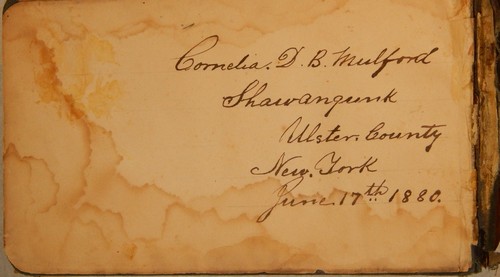 Cornelia. D. B. Mulford
Shawangunk
Ulster. County
New. York
June. 17th. 1880.